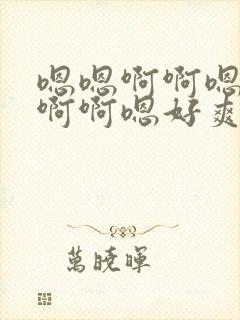 嗯嗯啊啊嗯
啊啊嗯好爽
萬曉暉